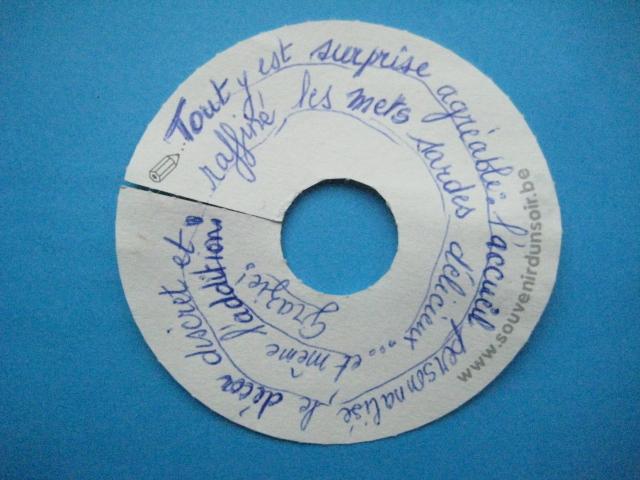 Tout y est surprise agréable: l'accueil personnalisé, le décor discret et
raffiné, les mets sardes délicieux... et même l'addition.
Grazie.
www.souvenirdunsoir.be